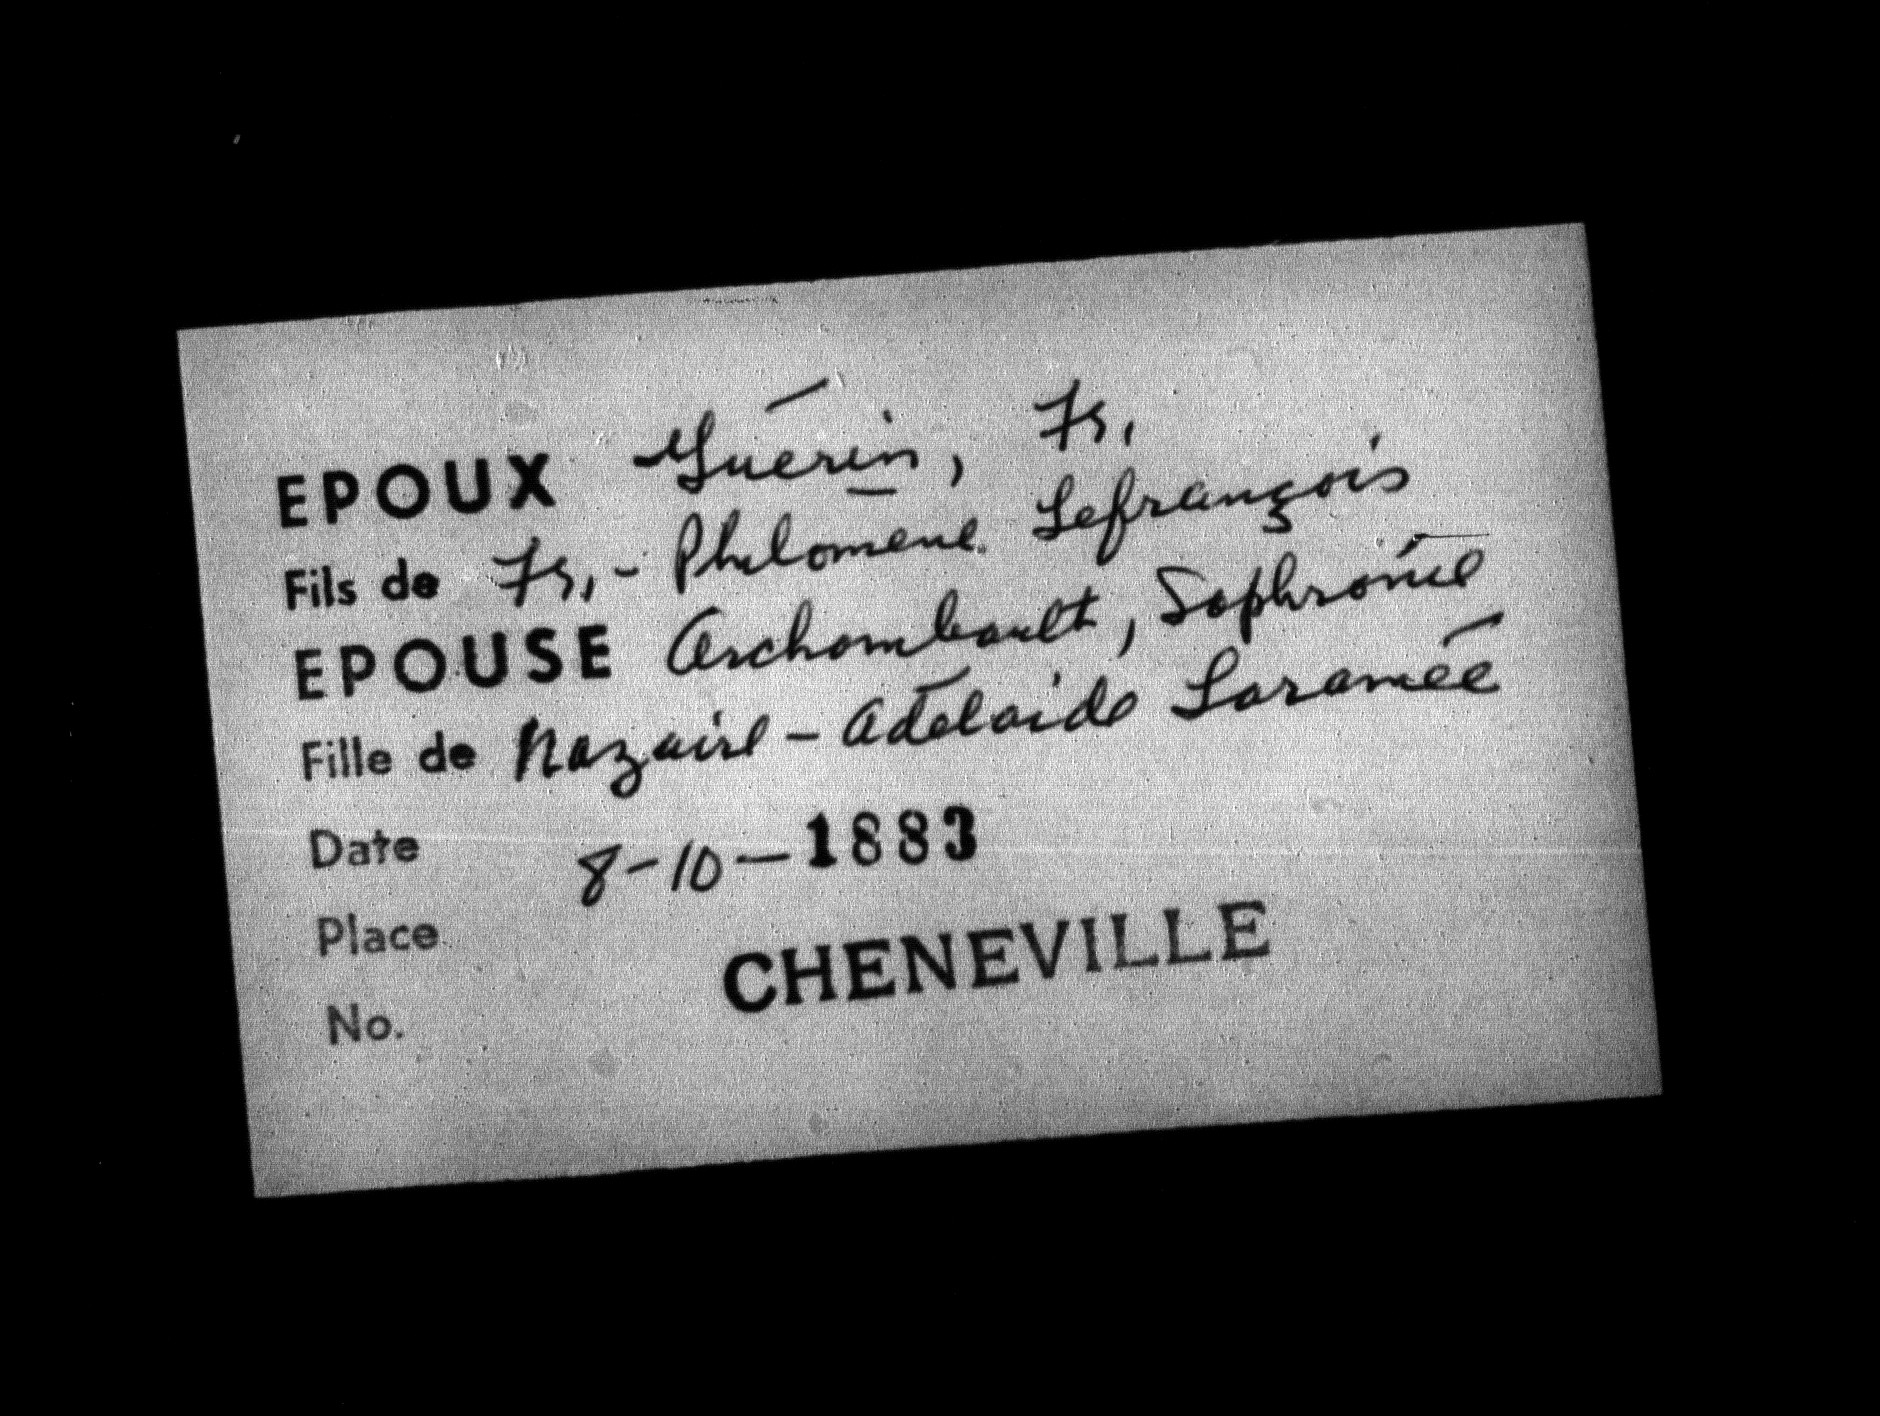 EPOUX Guérin, Fs.
Fils de Fs. - Philomene Lefrançois
EPOUSE Archambault, Sophronie
Fille de Nazaire - Adélaide Laramée
Date 8-10-1883
Place CHENEVILLE
No.